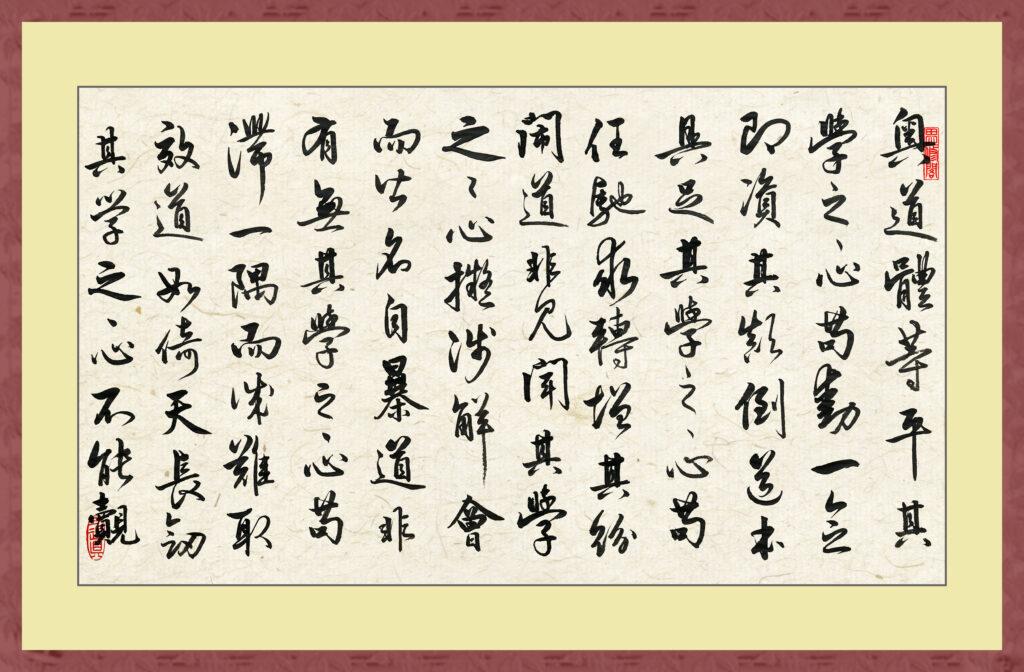 奧道體等平其
學之心苟動一念
即資其顛倒道本
具足其學之心苟
任馳求轉增其紛
鬧道非見聞其學
之々心擬涉解會
而皆名自暴道非
有無其學之心苟
滯一隅而成難取
效道如倚天長劒
其学之心不能覿